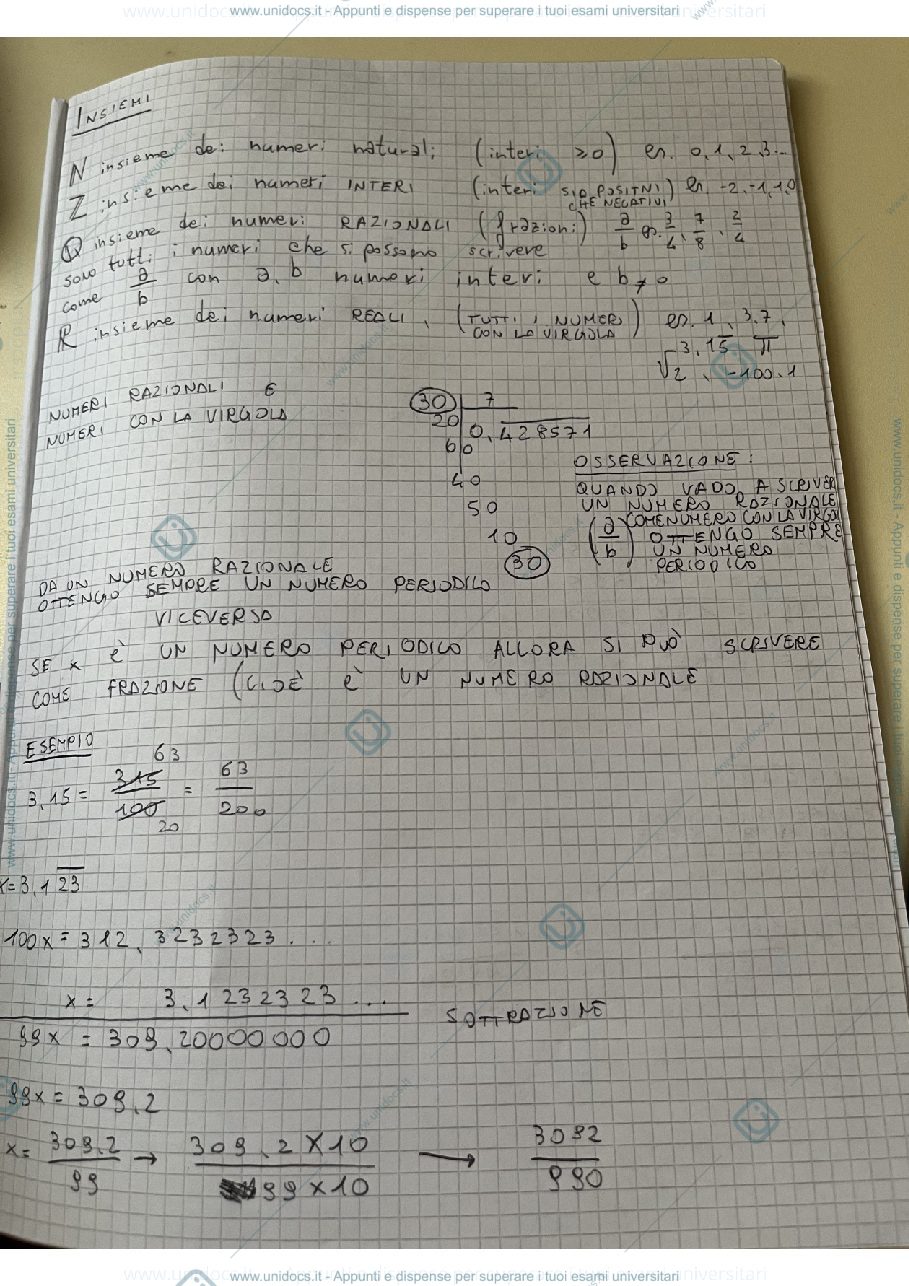 www.unidocs.it - Appunti e dispense per superare i tuoi esami universitari
INSIEMI
N insieme dei numeri naturali (interi ≥0) es. 0,1,2,3...
Z insieme dei numeri INTERI (interi SIA POSITIVI CHE NEGATIVI) es. -2,-1,1,0
Q insieme dei numeri RAZIONALI (frazioni) a/b es. 3/4, 7/8, 2/4
sono tutti i numeri che si possono scrivere
come a/b con a,b numeri interi e b≠0
R insieme dei numeri REALI, (TUTTI I NUMERI CON LA VIRGOLA) es. 1, 3,7,
3,15 π
√2, -100,1
NUMERI RAZIONALI E
NUMERI CON LA VIRGOLA
30 7
20 0,428571
60
40
50
10
30
OSSERVAZIONE:
QUANDO VADO A SCRIVER
UN NUMERO RAZIONALE
(a/b) COME NUMERO CON LA VIRGOL
OTTENGO SEMPRE
UN NUMERO
PERIODICO
DA UN NUMERO RAZIONALE
OTTENGO SEMPRE UN NUMERO PERIODICO
VICEVERSA
SE x È UN NUMERO PERIODICO ALLORA SI PUÒ SCRIVERE
COME FRAZIONE (CIOÈ È UN NUMERO RAZIONALE
ESEMPIO
63
3,15 = 315/100 = 63/200
20
x=3,1\overline{23}
100x = 312,3232323....
x = 3,1232323...
SOTTRAZIONE
99x = 309,20000000
99x = 309,2
x = 309,2/99 → 309,2×10/99×10 → 3092/990
www.unidocs.it - Appunti e dispense per superare i tuoi esami universitari